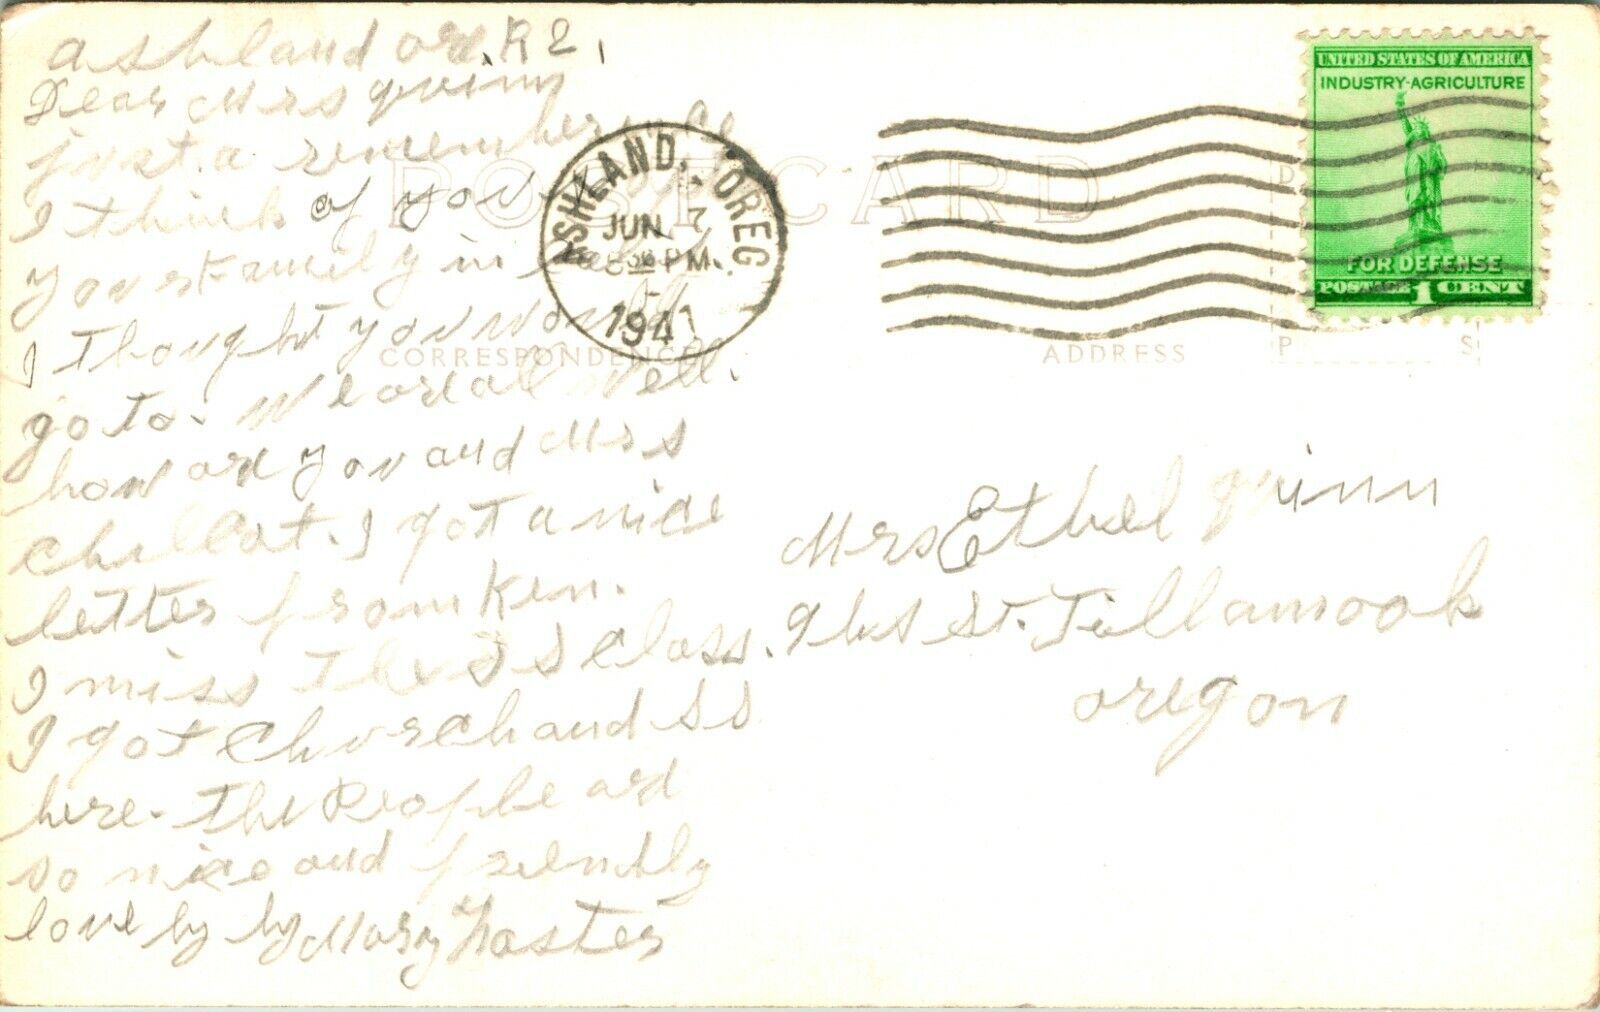 Ashland or. R 2.
Dear Mrs Quinn
just a remembernce
of you.
I think
your family in
I thought you would
go to. We ar all well.
how ar you and Mrs
I got a nice
letter from Ken.
I miss the S S class.
I got Church and S S
here. The People ar
so nice and frendly
love by by Mary Foster
POST CARD
CORRESPONDENCE
ADDRESS
P
S
ASHLAND, OREG
JUN 7
PM
1941
UNITED STATES OF AMERICA
INDUSTRY-AGRICULTURE
FOR DEFENSE
POSTAGE 1 CENT
Mrs Ethel Quinn
9th St. Tillamook
oregon